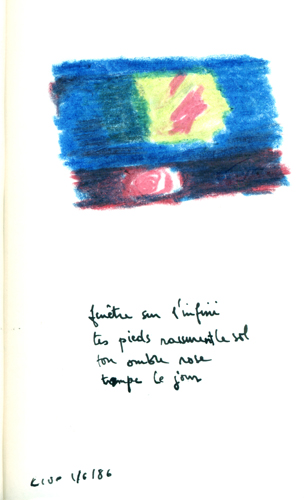 fenêtre sur l'infini
tes pieds rassurent le sol
ton ombre rose
trompe le jour
1/6/86